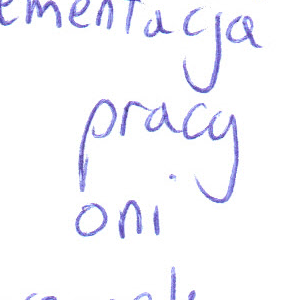 ementacja
pracy
oni